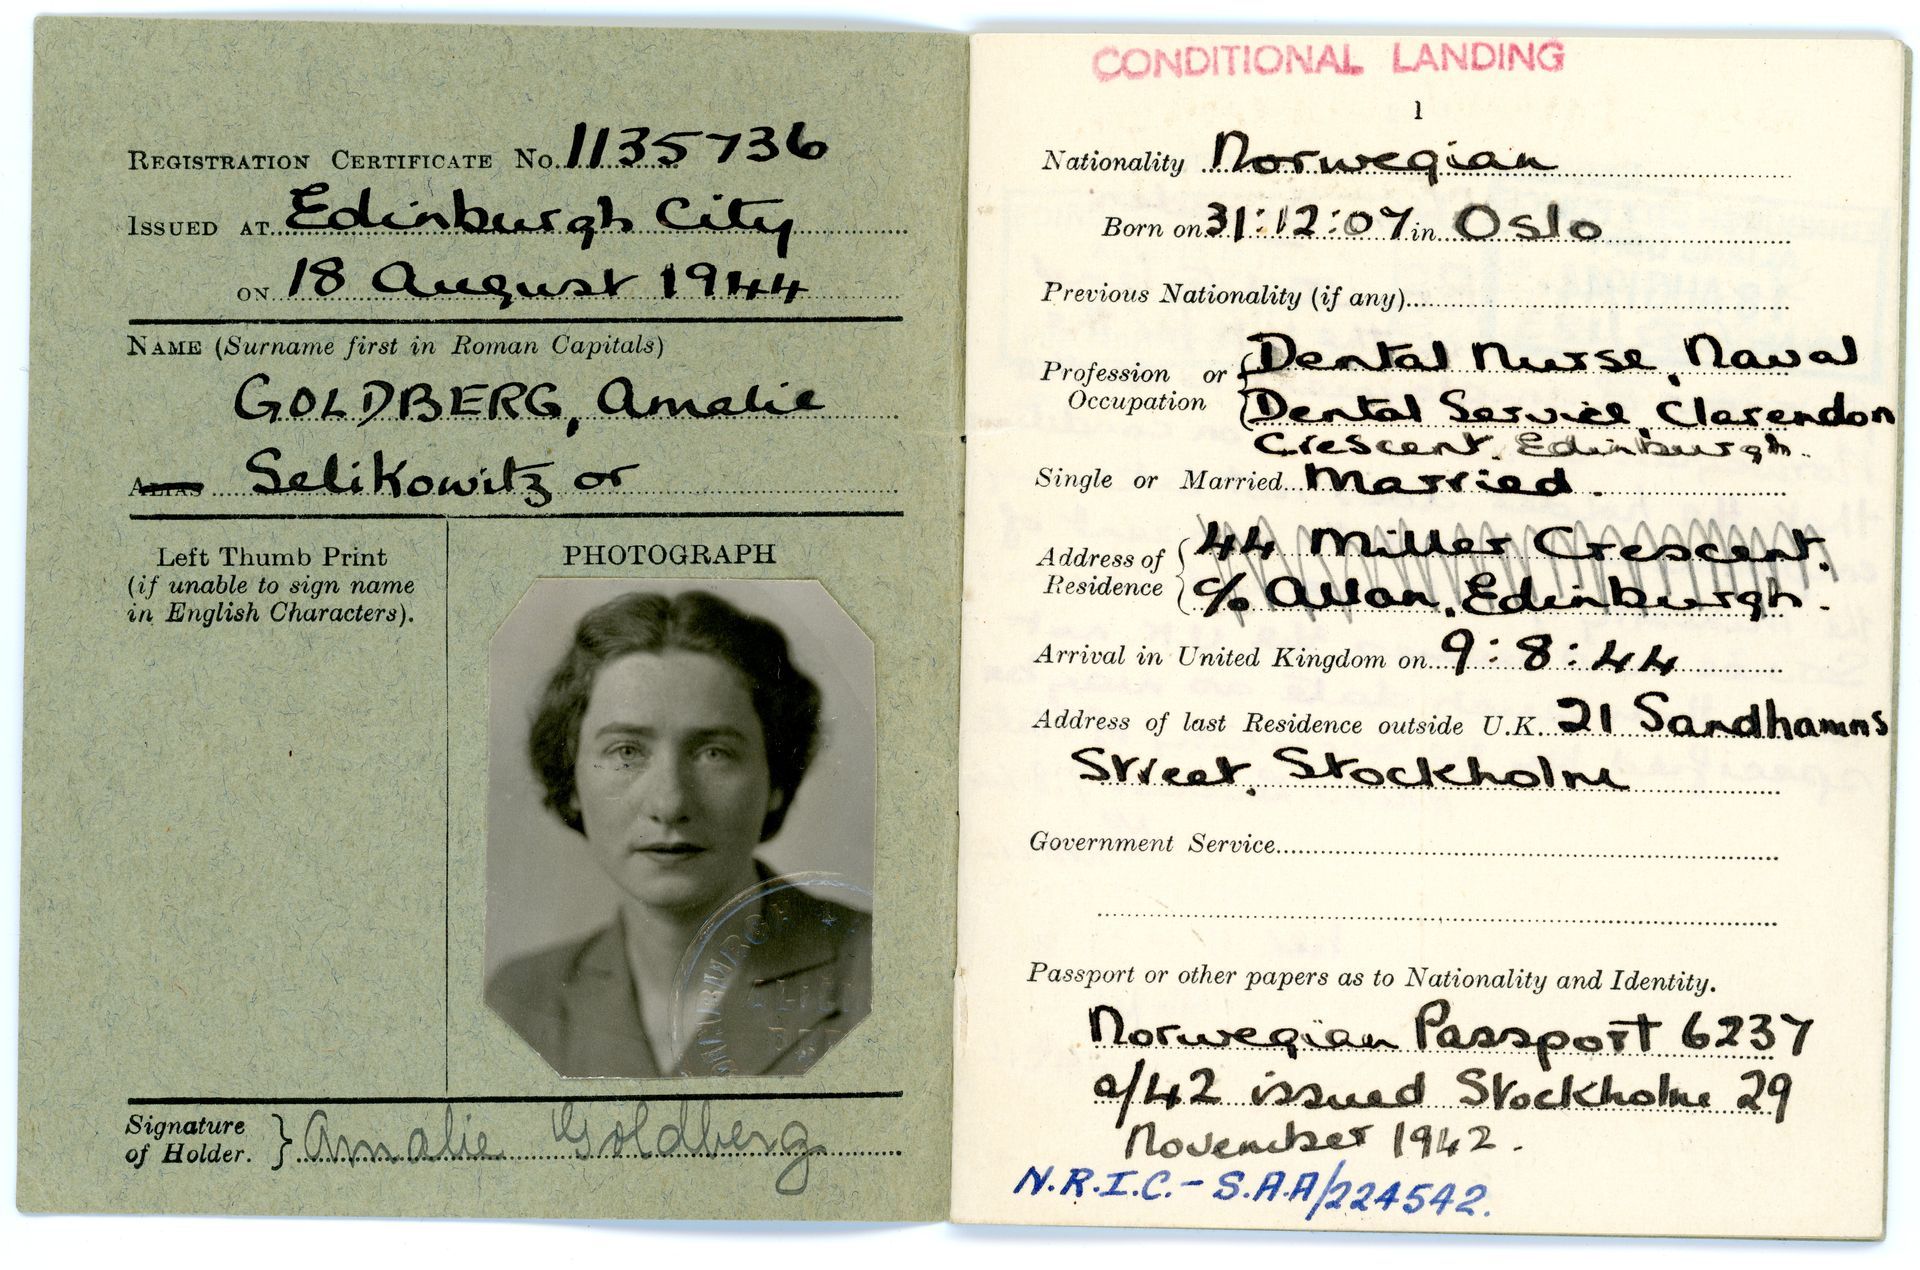 REGISTRATION CERTIFICATE No. 1135736
ISSUED AT Edinburgh City
ON 18 August 1944
NAME (Surname first in Roman Capitals)
GOLDBERG, Amalie
ALIAS Selikowitz or
Left Thumb Print
(if unable to sign name
in English Characters).
PHOTOGRAPH
Signature
of Holder. } Amalie Goldberg
CONDITIONAL LANDING
1
Nationality Norwegian
Born on 31:12:07 in Oslo
Previous Nationality (if any)
Profession or Occupation { Dental Nurse, Naval
Dental Service, Clarendon
Crescent, Edinburgh.
Single or Married Married.
Address of Residence { 44 Miller Crescent,
c/o Allan, Edinburgh.
Arrival in United Kingdom on 9:8:44
Address of last Residence outside U.K. 21 Sandhamns
Street, Stockholm
Government Service
Passport or other papers as to Nationality and Identity.
Norwegian Passport 6237
a/42 issued Stockholm 29
November 1942.
N.R.I.C.- S.A.A/224542.